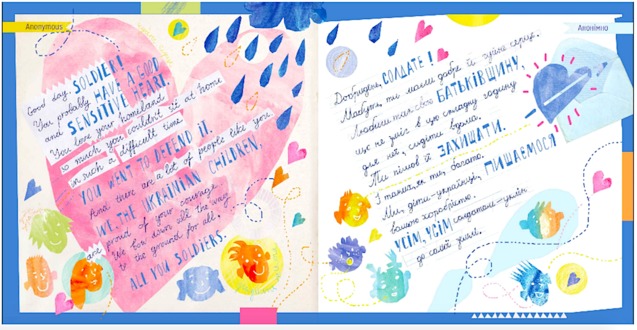 Anonymous
Good day, SOLDIER!
You probably HAVE A GOOD
and SENSITIVE HEART.
You love your homeland,
so much you couldn't sit at home
in such a difficult time.
YOU WANT TO DEFEND IT.
And there are a lot of people like you
WE, THE UKRAINIAN CHILDREN,
are proud of your courage.
We bow down all the way
to the ground for all.
ALL YOU SOLDIERS.
Анонімно
Добридень, СОЛДАТЕ!
Мабуть, ти маєш добре й чуйне серце.
Любиш так свою БАТЬКІВЩИНУ,
що не зміг в цю складну годину
для неї, сидіти вдома.
Ти пішов її ЗАХИЩАТИ.
І таких, як ти, багато.
Ми, діти-українці, ПИШАЄМОСЯ
вашою хоробрістю.
УСІМ, УСІМ солдатам-уклін
до самої землі.